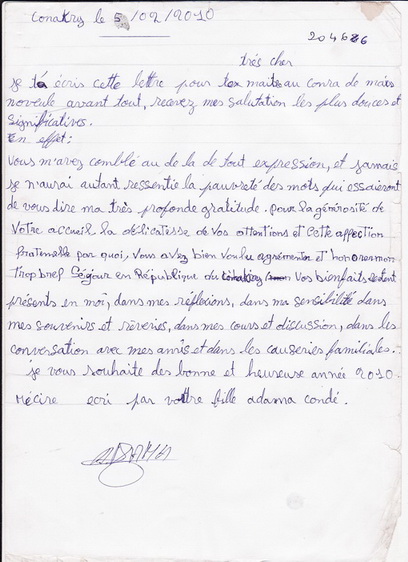 Conakry le 5/02/2010
204686
très cher
je t'a écris cette lettre pour tex maiteau conra de mais
noveule avant tout, recevez mes salutation les plus douces et
significatives.
En effet;
Vous m'avez comblé au de la de tout expression, et jamais
je n'aurai autant ressentie la pauvreté des mots qui essaieront
de vous dire ma très profonde gratitude. pour la générosité de
Votre accueil la délicatesse de vos attentions et cette affection
fratenelle par quoi, vous avez bien voulu agrémenter et honorer mon
Trop bref séjour en République du Vos bienfaits restent
présents en moi, dans mes réflexions, dans ma sensibilité dans
mes souvenirs et rèveries, dans mes cours et discussion, dans les
conversation avec mes amis et dans les causeries familiales.
je vous souhaite des bonne et heureuse année 2010.
Mécire ecri par vottre fille adama condé.
ADAMA